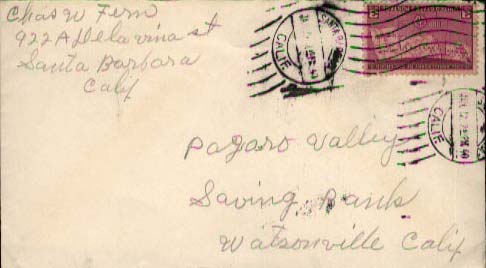 Chas W Fern
922 A De la vina st
Santa Barbara
Calif
CALIF
SANTA BARBARA
CALIF
Pagaro Valley
Saving Bank
Watsonville Calif